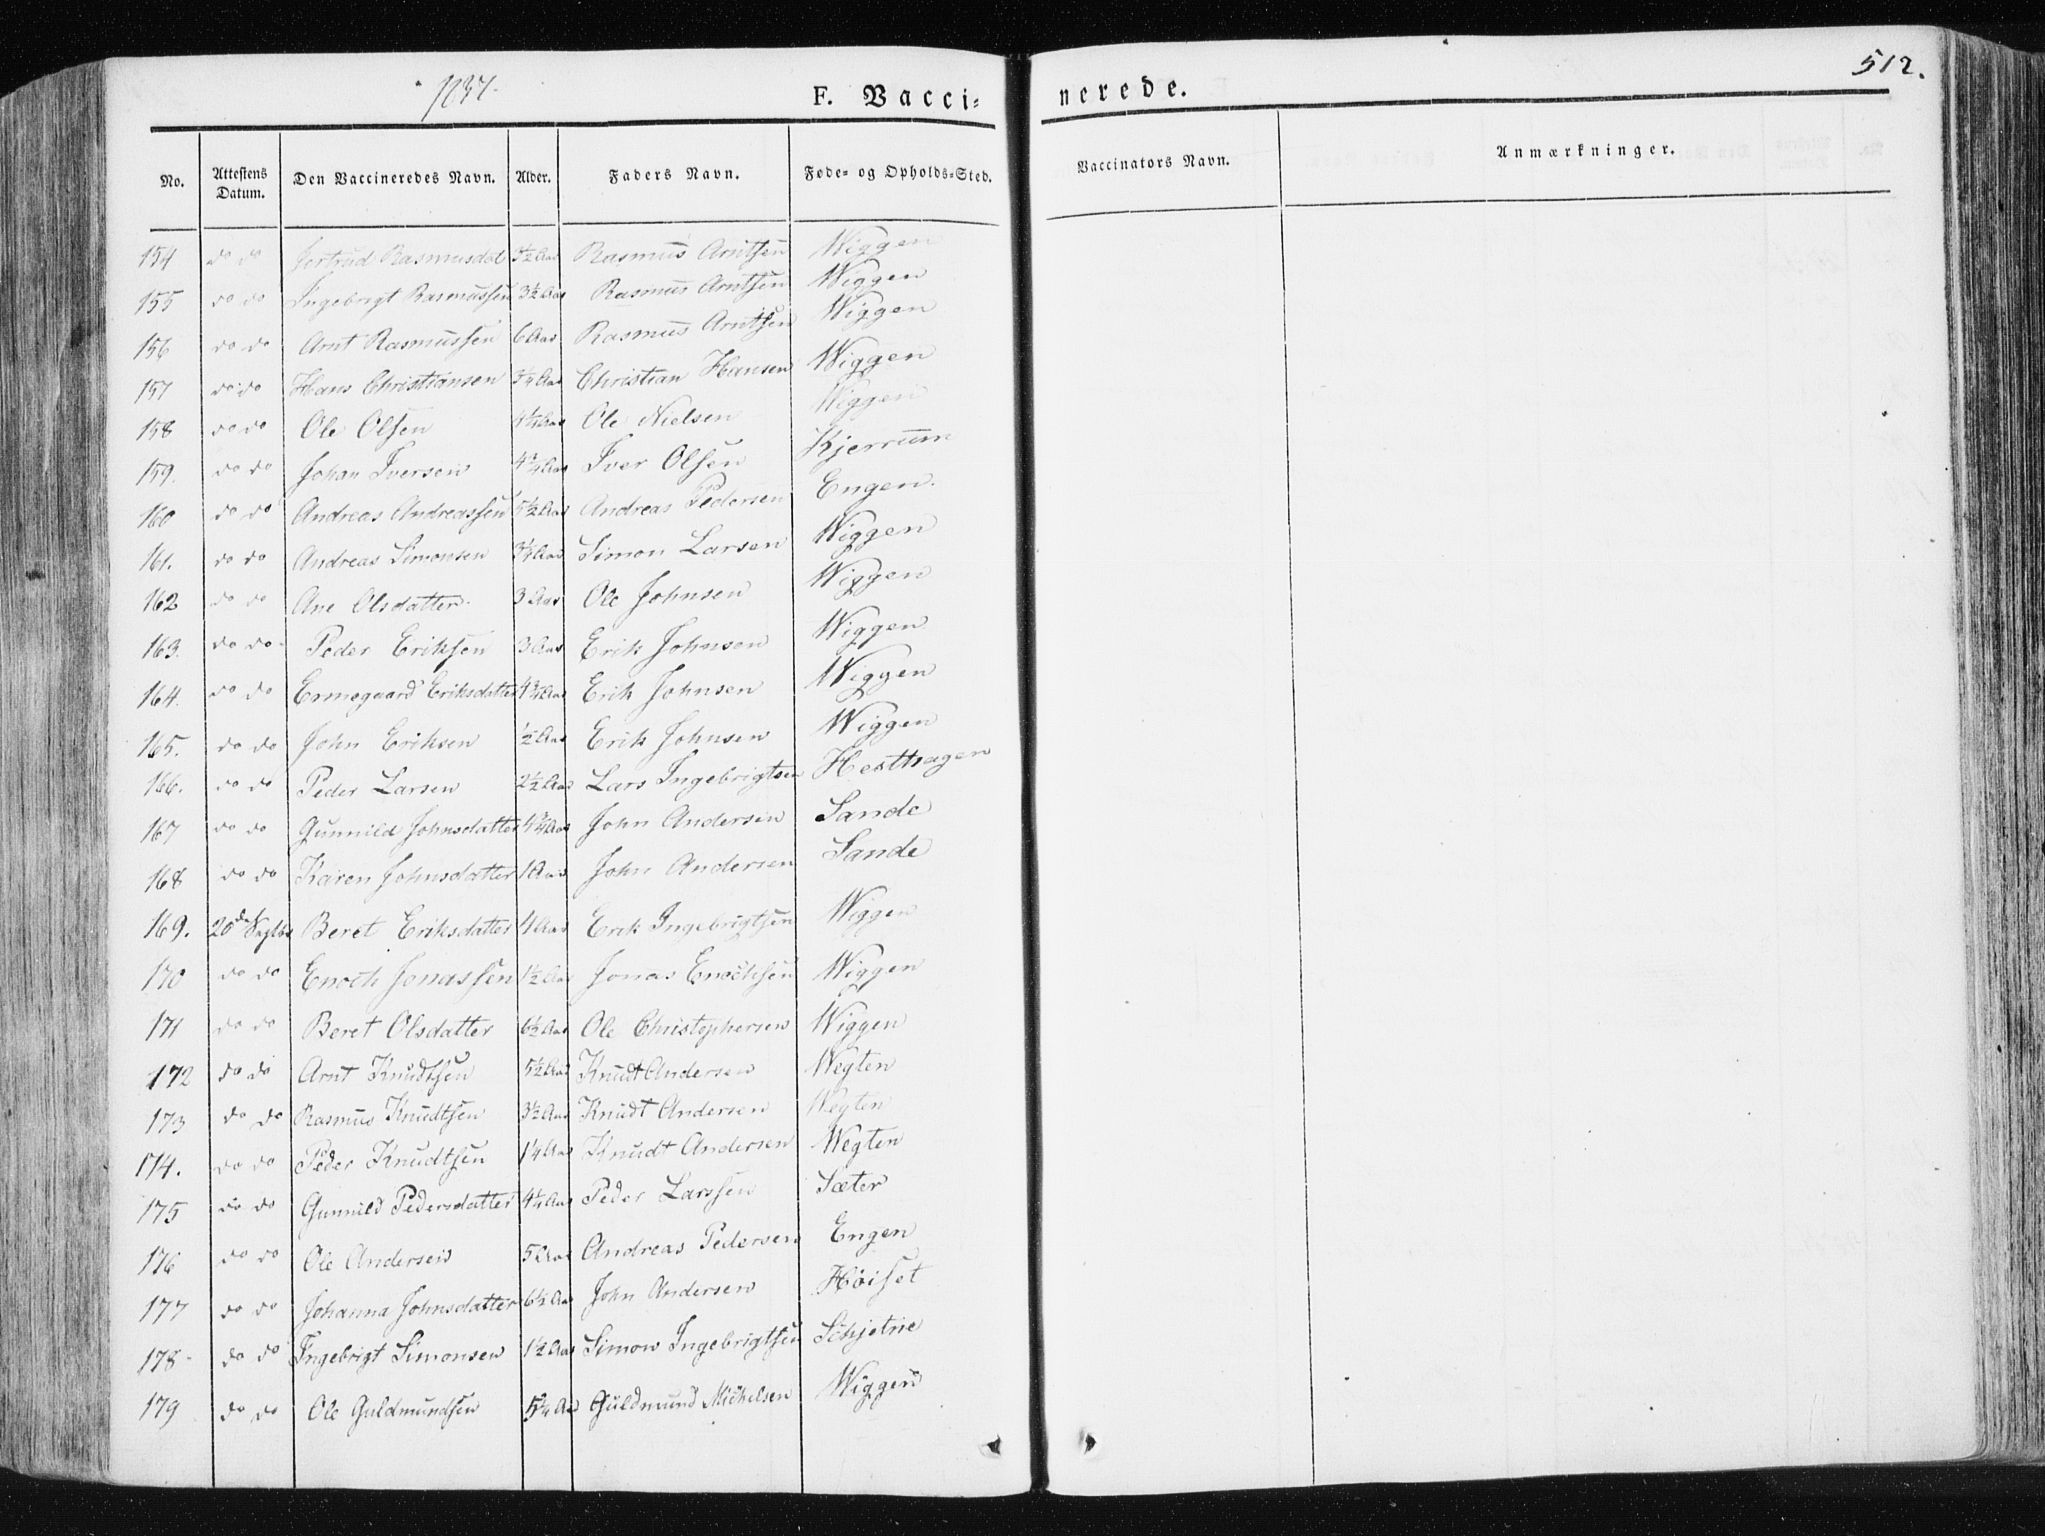 1837.
F. Vaccinerede.
512.
No. Attestens Datum. Den Vaccineredes Navn. Alder. Faders Navn. Føde- og Opholds-Sted. Vaccinators Navn. Anmærkninger.
154 do do Gertrud Rasmusdat Rasmus Arntsen Wiggen
155 do do Ingebrigt Rasmussen 3½ Aar Rasmus Arntsen Wiggen
156 do do Arnt Rasmussen 6 Aar Rasmus Arntsen Wiggen
157 do do Hans Christiansen Christian Hansen Wiggen
158 do do Ole Olsen Ole Nielsen Wiggen
159. do do Johan Iversen Iver Olsen Kjerrum
160 do do Andreas Andreassen 5½ Aar Andreas Pedersen Engen.
161. do do Andreas Simonsen Simon Larsen Wiggen
162 do do Ane Olsdatter 3 Aar Ole Johnsen Wiggen
163. do do Peder Eriksen 3 Aar Erik Johnsen Wiggen
164. do do Ermegaard Eriksdatter 4¾ Aar Erik Johnsen Wiggen
165. do do John Eriksen ½ Aar Erik Johnsen Wiggen
166. do do Peder Larsen 2½ Aar Lars Ingebrigtsen Hesthagen
167 do do Gunnild Johnsdatter 4¾ Aar John Andersen Sande
168 do do Karen Johnsdatter 1 Aar John Andersen Sande
169. 20de Septbr Beret Eriksdatter 4 Aar Erik Ingebrigtsen Wiggen
170 do do Enoch Jonassen 1½ Aar Jonas Enochsen Wiggen
171 do do Beret Olsdatter 6½ Aar Ole Christophersen Wiggen
172 do do Arnt Knudtsen 5½ Aar Knudt Andersen Wegten
173 do do Rasmus Knudtsen 3½ Aar Knudt Andersen Wegten
174. do do Peder Knudtsen 1¼ Aar Knudt Andersen Wegten
175 do do Gunnild Pedersdatter 4¼ Aar Peder Larssen Sæter
176 do do Ole Andersen 5 Aar Andreas Pedersen Engen
177 do do Johanna Johnsdatter 6½ Aar John Andersen Høiset
178 do do Ingebrigt Simonsen 1½ Aar Simon Ingebrigtsen Schjetne
179 do do Ole Guldmundsen Guldmund Michelsen Wiggen